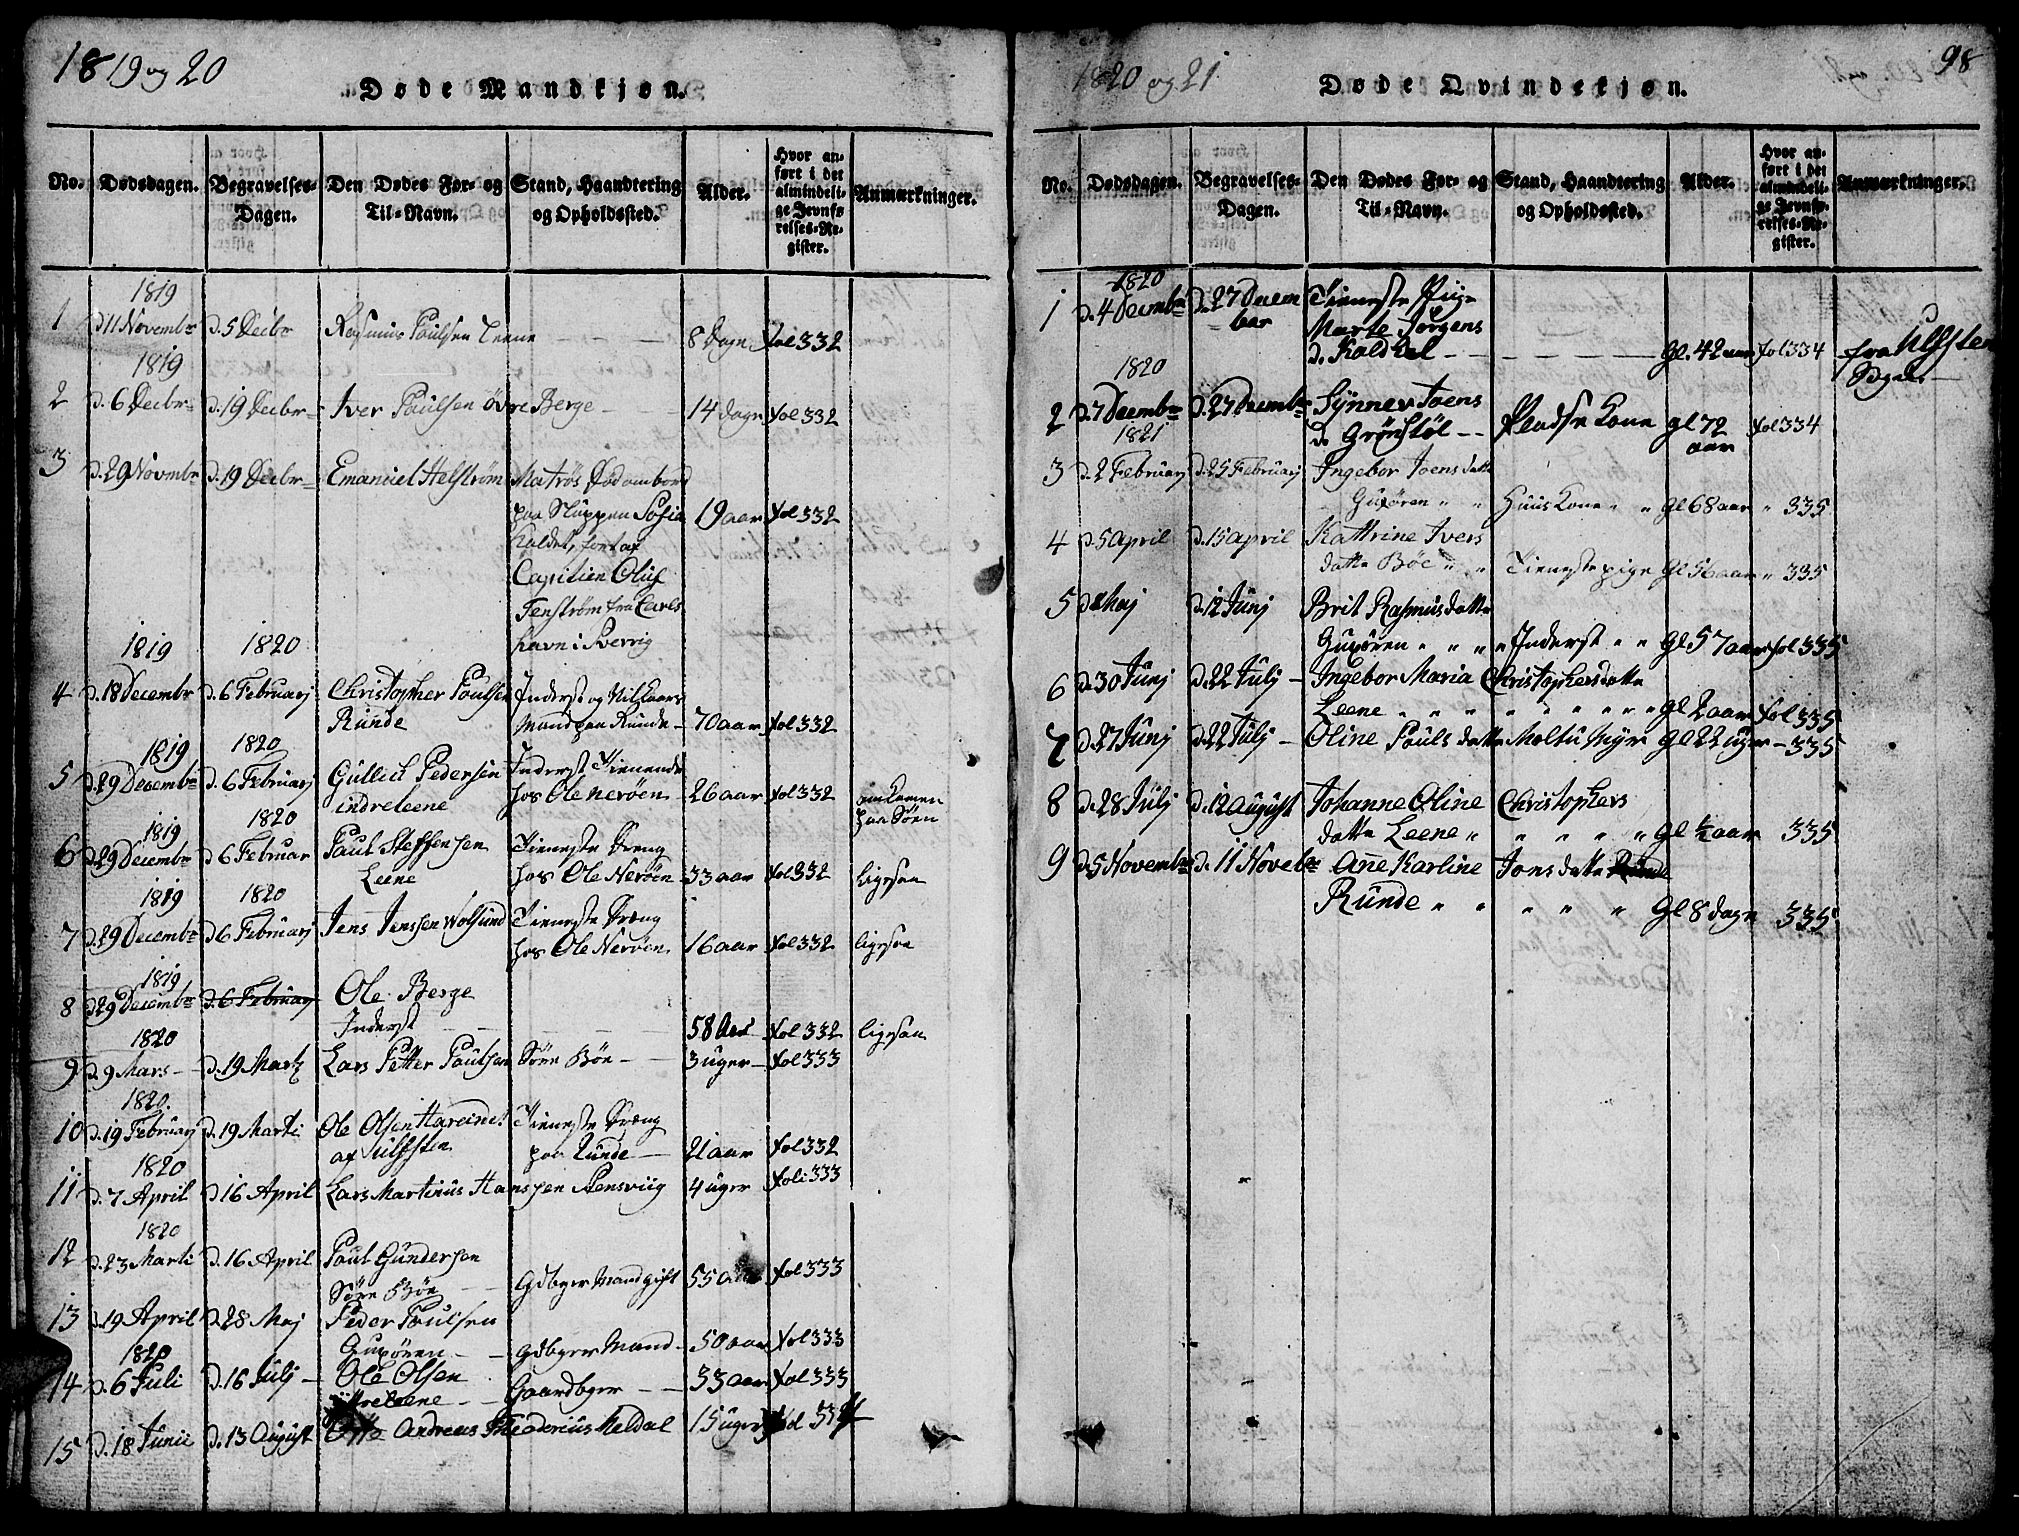 1819 og 20
Døde Mandkjøn.
No. Dødsdagen. Begravelses-Dagen. Den Dødes For- og Til-Navn. Stand, Haandtering og Opholdssted. Alder. Hvor anført i det almindelige Jevnførelses-Register. Anmærkninger.
1819
1 d. 11 Novembr d. 5 Decbr Rasmus Paulsen Leene 8 Dage Fol 332
1819
2 d. 6 Decbr d. 19 Decbr Iver Paulsen øvre Berge 14 dage Fol 332
3 d. 29 Novembr d. 19 Decbr Emanuel Helstrøm Matrøs Død ombord
paa Sluppen Sofia 19 aar Fol 332
Kaldet, fort af
Capitien Oluf
Fenstrøm fra Carls
havn i Sverrig
1819 1820
4 d. 18 Decembr d. 6 Februarj Christopher Poulsen Inderst og
Runde Mand paa Runde 70 aar Fol 332
1819 1820
5 d. 29 Decembr d. 6 Februarj Gullich Pedersen Inderst Tienende
indreleene hos Ole Nerøen 26 aar Fol 332 omkomen
paa Søen
1819 1820
6 d. 29 Decembr d. 6 Februar Paul Steffensen Tieneste Dreng
Leene hos Ole Nerøen 33 aar Fol 332 ligesaa
1819 1820
7 d. 29 Decembr d. 6 Februarj Jens Jensen Tieneste Dreng
hos Ole Nerøen 16 aar Fol 332 ligesaa
1819
8 d. 29 Decembr d. 6 Februarj Ole Berge
Inderst 58 Aar Fol 332 ligesaa
1820
9 d. 9 Mars d. 19 Martz Lars Petter Paulsen Søre Bøe 3 uger Fol 333
1820
10 d. 19 Februarj d. 19 Marti Ole Olsen Hareide Tieneste Dreng
af Ulfsten paa Runde 21 aar Fol 332
1820
11 d. 7 April d. 16 April Lars Martinus Hansen 4 uger Foli 333
1820
12 d. 23 Marti d. 16 April Paul Gundersen
Søre Bøe Gdbger Mand gift 55 aar Fol 333
13 d. 19 April d. 28 Maj Peder Poulsen
Gurøren Gdbger Mand 50 aar Fol 333
1820
14 d. 6 Juli d. 16 Julj Ole Olsen
ittreleene Gaardbger 53 aar Fol 333
15 d. 18 Junii d. 13 August Otto Andreas Theodorius Meldal 15 uger
1820 og 21
98
Døde Qvindekjøn.
No. Dødsdagen. Begravelses-Dagen. Den Dødes For- og Til-Navn. Stand, Haandtering og Opholdssted. Alder. Hvor anført i det almindelige Jevnførelses-Register. Anmærkninger.
1820
1 d. 4 Decembr d. 27 Decem Tieneste Pige
ber Marte Jørgens
d. Kaldhol gl. 42 aar fol 334 fra Ulfsten
Sogn
1820
2 d. 7 Decembr d. 27 Decembr Synnev Joens
d. Grønstøl Pladse Kone gl 72 Fol 334
aar
1821
3 d. 2 Februarj d. 25 Februarj Ingebor Joens datte
Gurøren " " Huus Kone " " gl 68 aar " 335
4 d. 5 April d. 15 April Kattrine Ivers
datte Bøe " " Tienestepige gl 56 aar " 335
5 d. Maj d. 12 Junj Brit Rasmusdatte
Gurøren " " " Inderst " " gl 57 aar fol 335
6 d. 30 Junj d. 22 Julj Ingebor Maria Christophersdatte
Leene " " " " " " " " gl 2 aar Fol 335
7 d. 27 Junj d. 22 Julj Oline Pouls datte Moltu Myr gl 22 uger 335
8 d. 28 Julj d. 12 august Johanne Oline Christophers
datte Leene " " " " " gl ½ aar 335
9 d. 5 Novembr d. 11 Novebr Anne Karline Jons datte Runde
Runde " " " " " gl 8 dage 335